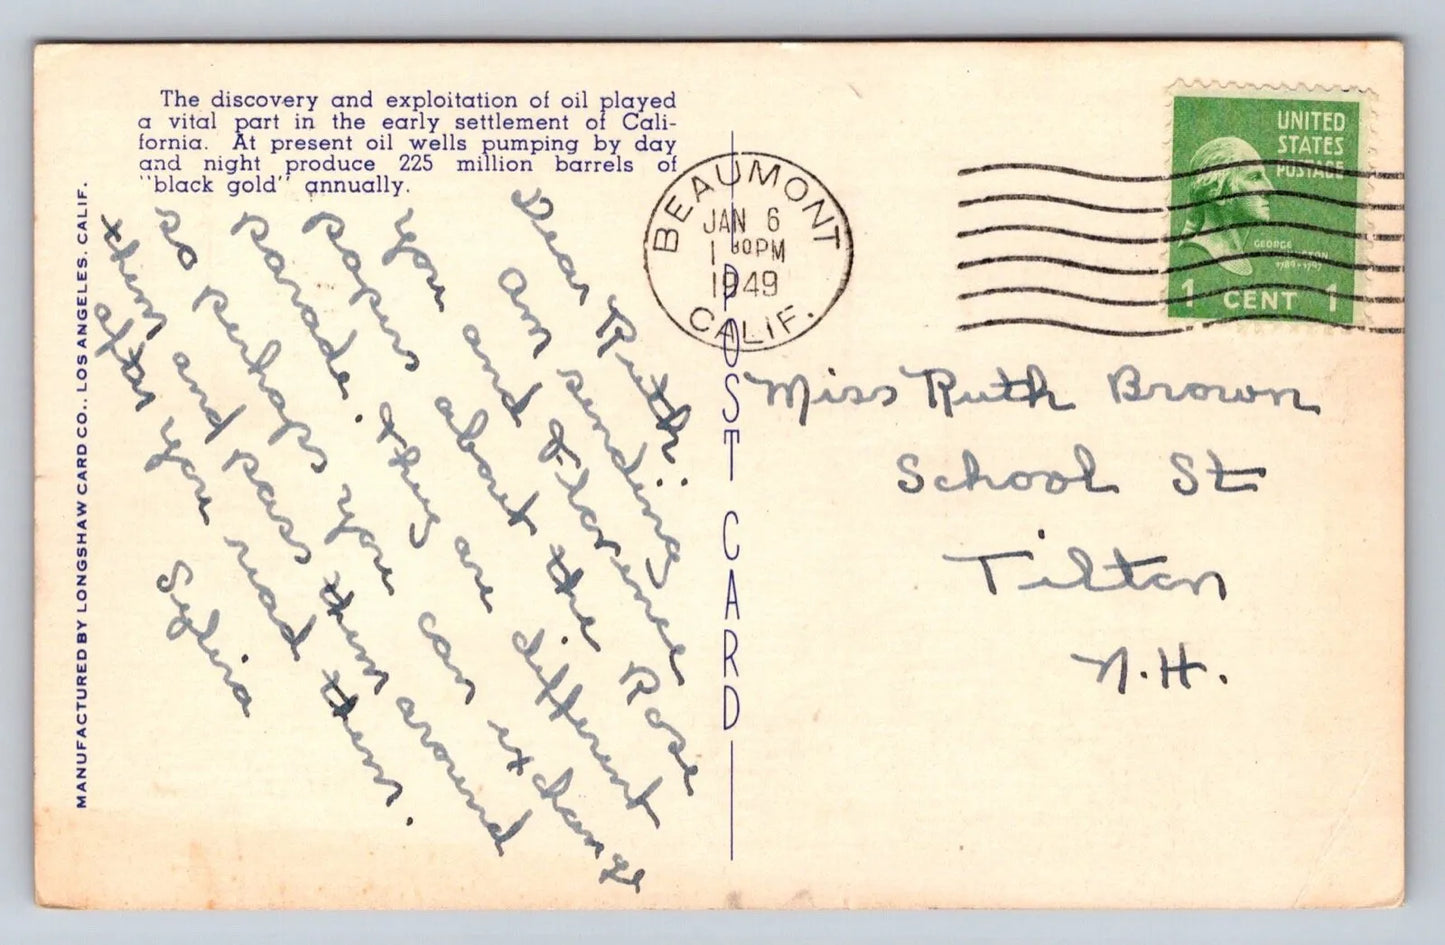 The discovery and exploitation of oil played
a vital part in the early settlement of Cali-
fornia. At present oil wells pumping by day
and night produce 225 million barrels of
"black gold" annually.
MANUFACTURED BY LONGSHAW CARD CO., LOS ANGELES, CALIF.
Dear Ruth:
am sending
you and Florence
papers about the Rose
parade. they are different
so perhaps you can exchange
them and pass them around
after you read them.
Sylvia
POST CARD
BEAUMONT
JAN 6
1 30 PM
1949
CALIF.
UNITED
STATES
POSTAGE
GEORGE
WASHINGTON
1789-1797
1 CENT 1
Miss Ruth Brown
School St
Tilton
N.H.